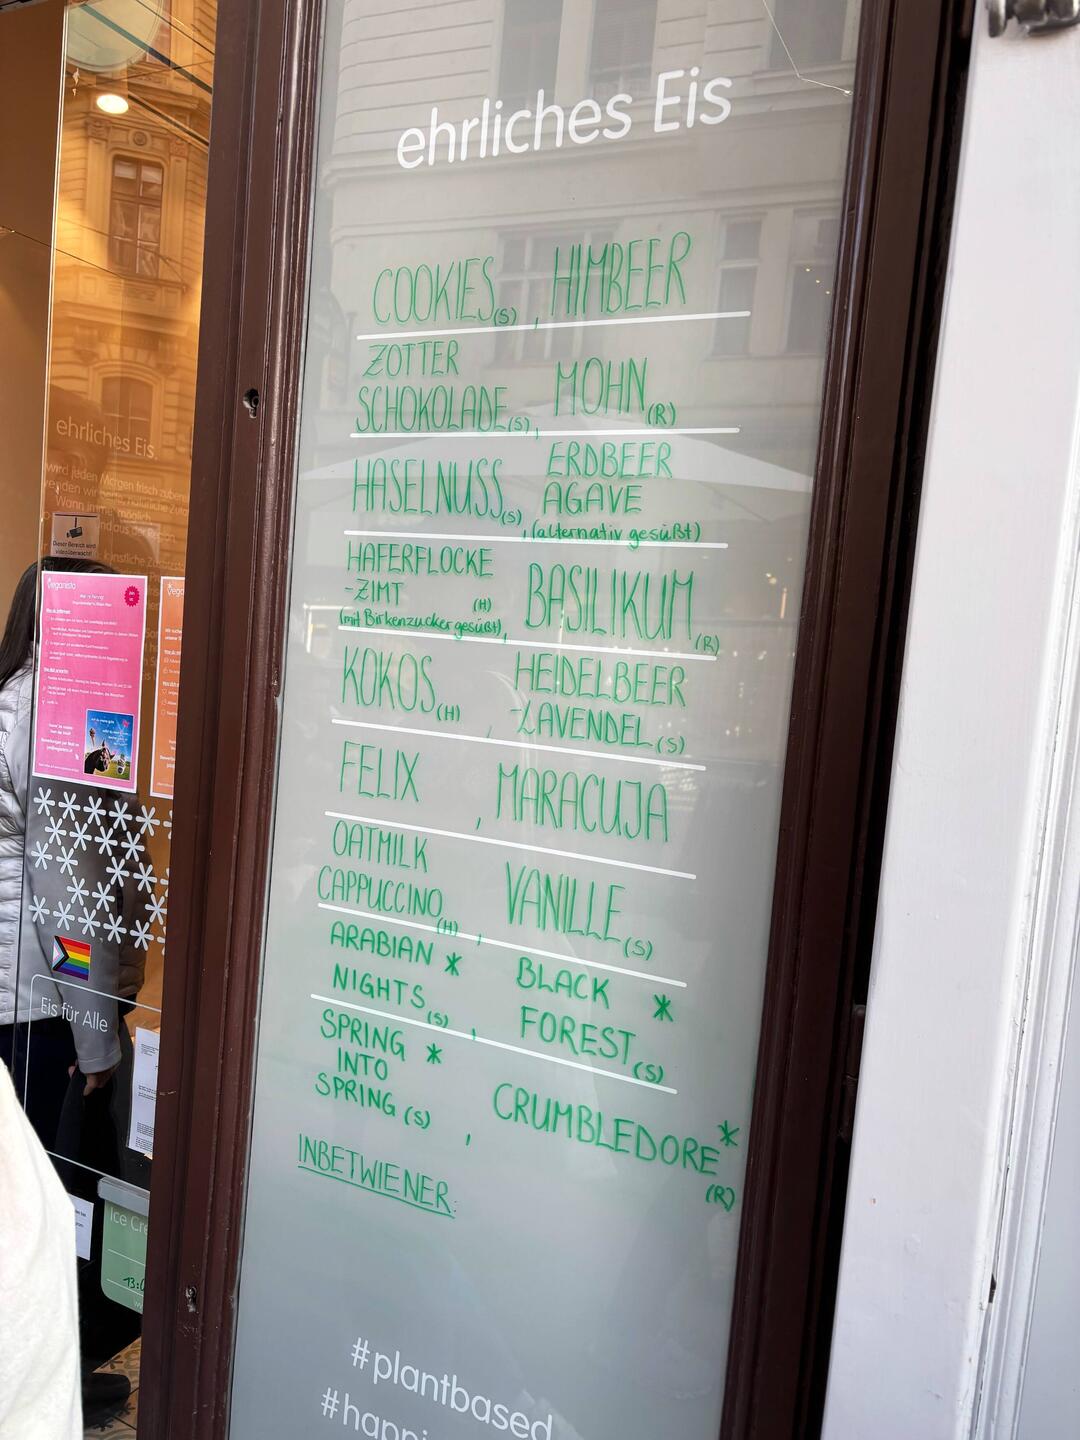 ehrliches Eis
COOKIES (S), HIMBEER
ZOTTER
SCHOKOLADE (S), MOHN (R)
HASELNUSS (S), ERDBEER
AGAVE
(alternativ gesüßt)
HAFERFLOCKE
-ZIMT (H)
(mit Birkenzucker gesüßt), BASILIKUM (R)
KOKOS (H), HEIDELBEER
-LAVENDEL (S)
FELIX, MARACUJA
OATMILK
CAPPUCCINO (H), VANILLE (S)
ARABIAN *
NIGHTS (S), BLACK *
FOREST (S)
SPRING *
INTO
SPRING (S), CRUMBLEDORE *
(R)
INBETWIENER:
#plantbased
ehrliches Eis.
wird jeden Morgen frisch
Wann immer möglich
aus der Region
Dieser Bereich wird
videoüberwacht!
veganista
Eis für Alle
Ice